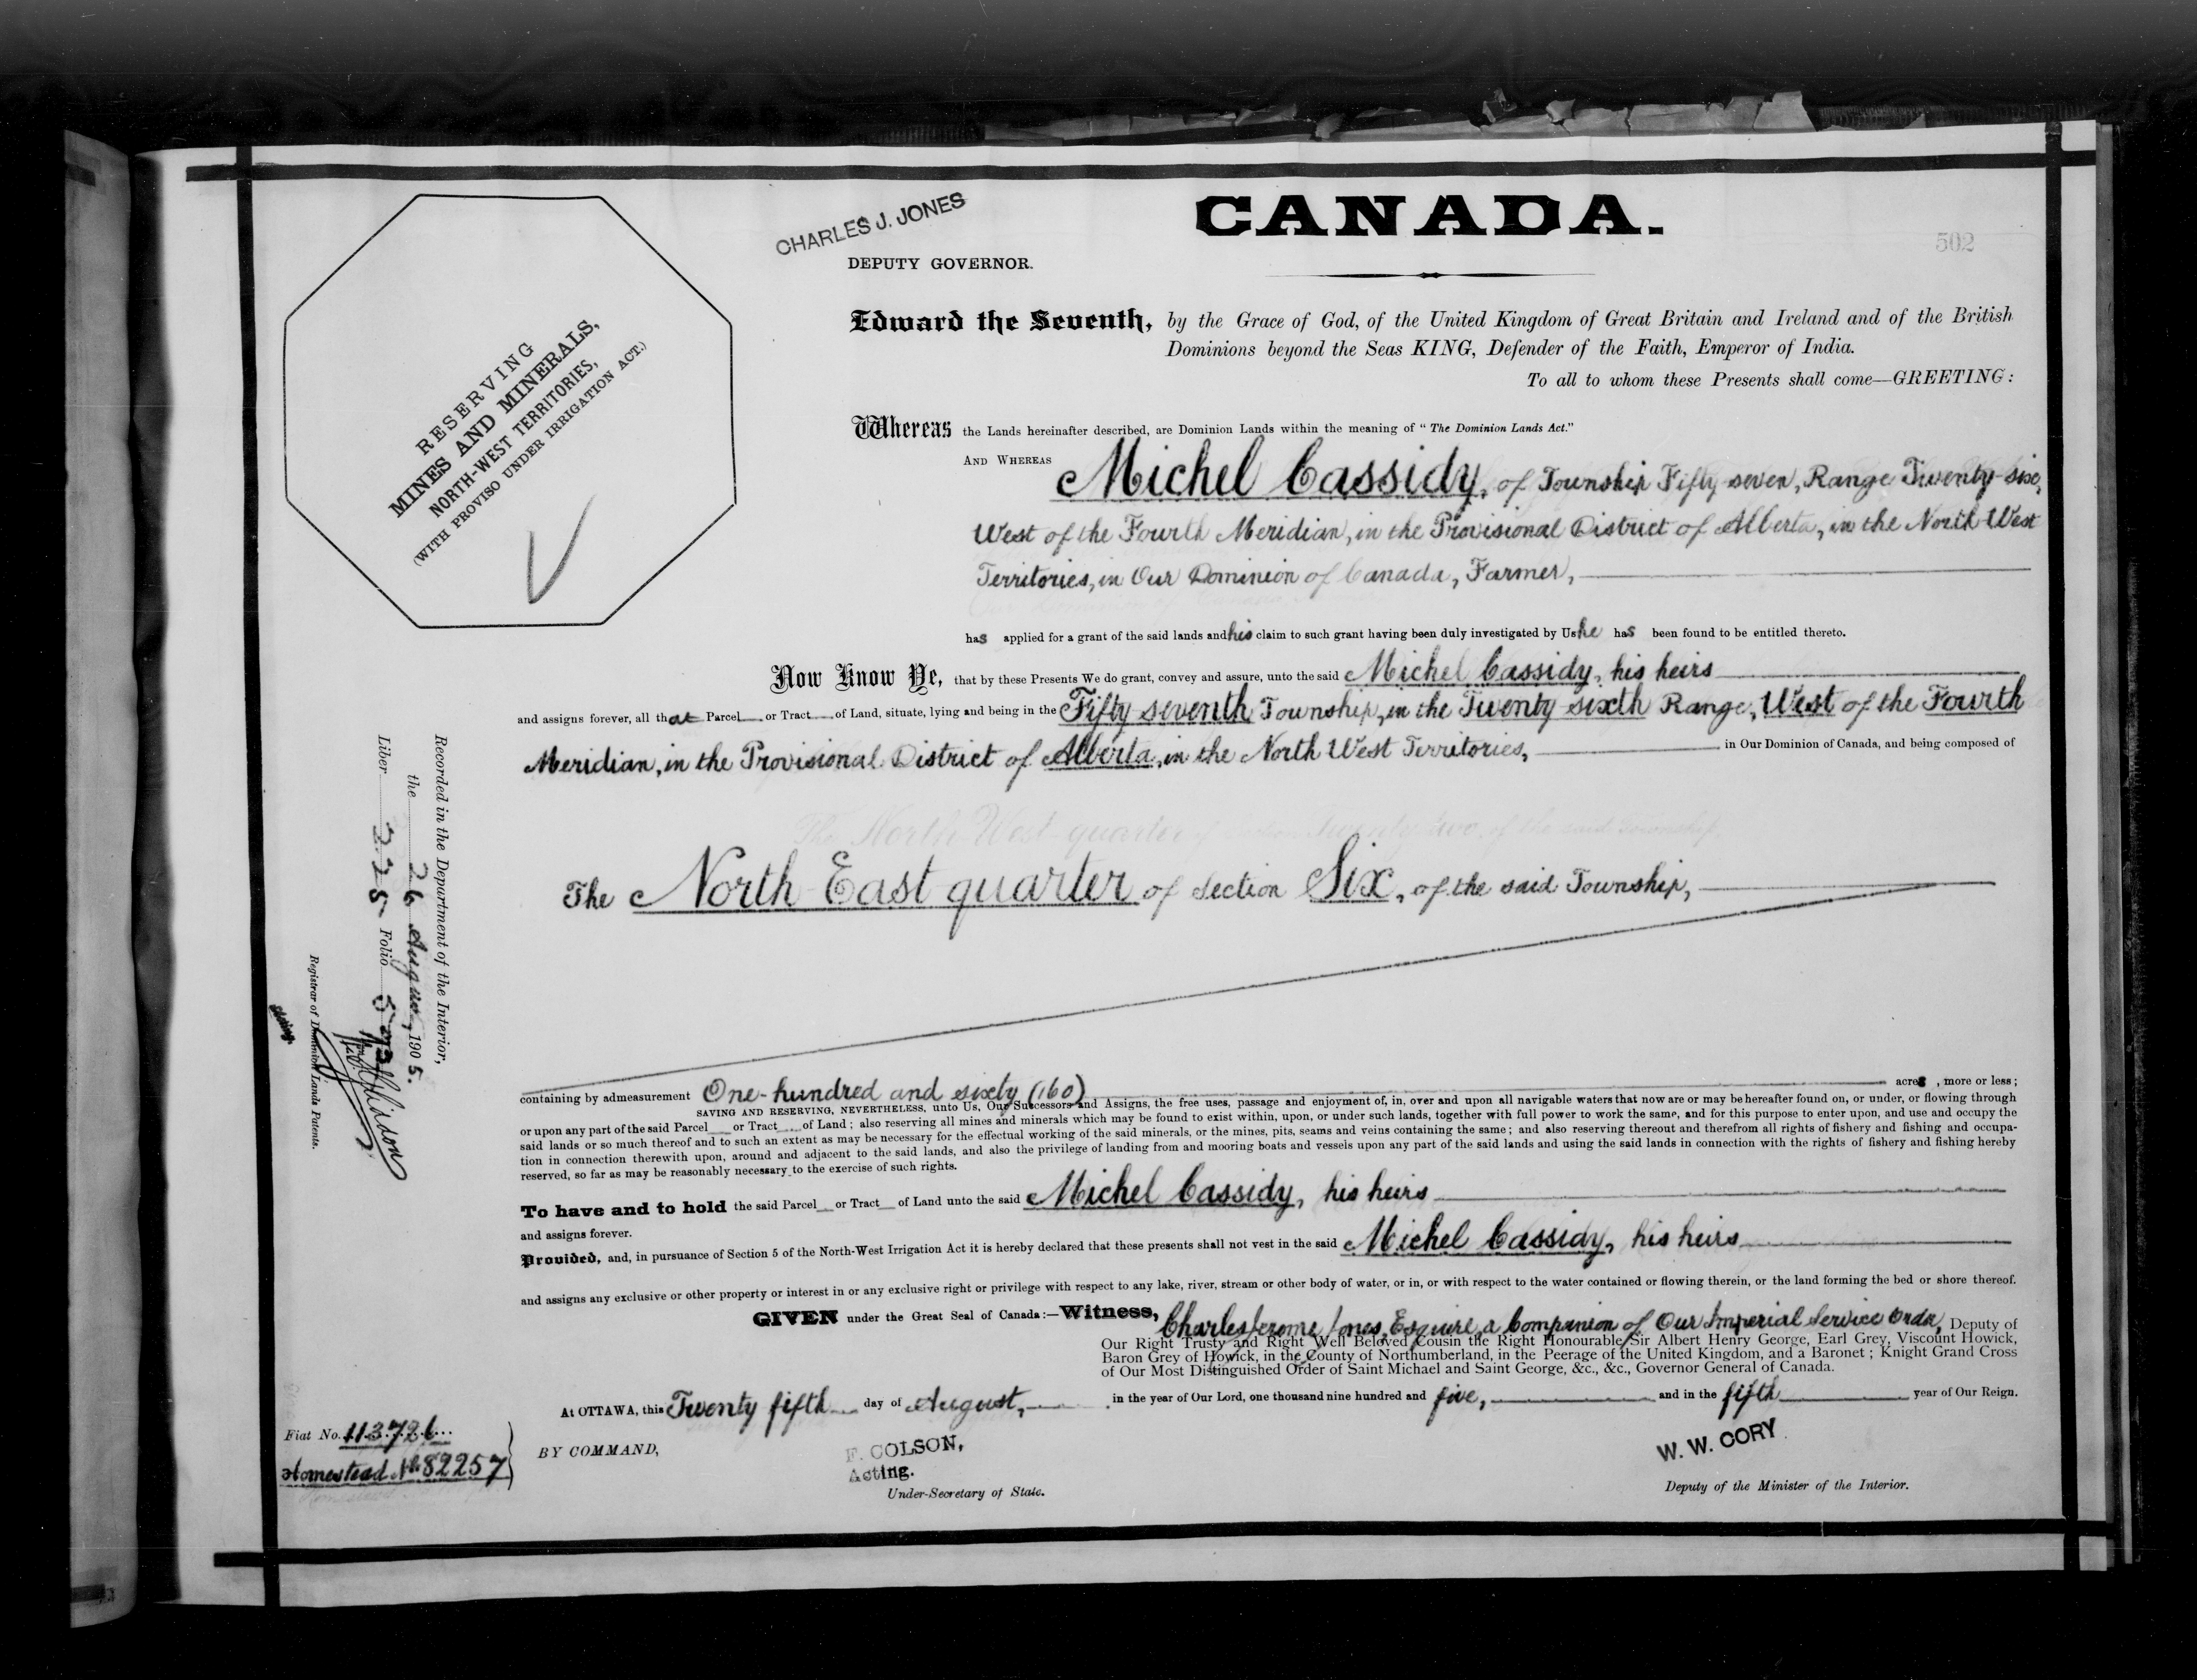 CHARLES J. JONES
DEPUTY GOVERNOR.
CANADA.
502
RESERVING
MINES AND MINERALS,
NORTH-WEST TERRITORIES,
(WITH PROVISO UNDER IRRIGATION ACT.)
Edward the Seventh, by the Grace of God, of the United Kingdom of Great Britain and Ireland and of the British
Dominions beyond the Seas KING, Defender of the Faith, Emperor of India.
To all to whom these Presents shall come—GREETING:
Whereas the Lands hereinafter described, are Dominion Lands within the meaning of "The Dominion Lands Act."
AND WHEREAS Michel Cassidy, of Township Fifty seven, Range Twenty-six,
West of the Fourth Meridian, in the Provisional District of Alberta, in the North West
Territories, in Our Dominion of Canada, Farmer,
has applied for a grant of the said lands and his claim to such grant having been duly investigated by Us he has been found to be entitled thereto.
Now Know Ye, that by these Presents We do grant, convey and assure, unto the said Michel Cassidy, his heirs
and assigns forever, all that Parcel or Tract of Land, situate, lying and being in the Fifty seventh Township, in the Twenty sixth Range, West of the Fourth
Meridian, in the Provisional District of Alberta, in the North West Territories, in Our Dominion of Canada, and being composed of
The North East quarter of Section Six, of the said Township,
containing by admeasurement One hundred and sixty (160) acres, more or less;
SAVING AND RESERVING, NEVERTHELESS, unto Us, Our Successors and Assigns, the free uses, passage and enjoyment of, in, over and upon all navigable waters that now are or may be hereafter found on, or under, or flowing through
or upon any part of the said Parcel or Tract of Land; also reserving all mines and minerals which may be found to exist within, upon, or under such lands, together with full power to work the same, and for this purpose to enter upon, and use and occupy the
said lands or so much thereof and to such an extent as may be necessary for the effectual working of the said minerals, or the mines, pits, seams and veins containing the same; and also reserving thereout and therefrom all rights of fishery and fishing and occupa-
tion in connection therewith upon, around and adjacent to the said lands, and also the privilege of landing from and mooring boats and vessels upon any part of the said lands and using the said lands in connection with the rights of fishery and fishing hereby
reserved, so far as may be reasonably necessary to the exercise of such rights.
To have and to hold the said Parcel or Tract of Land unto the said Michel Cassidy, his heirs
and assigns forever.
Provided, and, in pursuance of Section 5 of the North-West Irrigation Act it is hereby declared that these presents shall not vest in the said Michel Cassidy, his heirs
and assigns any exclusive or other property or interest in or any exclusive right or privilege with respect to any lake, river, stream or other body of water, or in, or with respect to the water contained or flowing therein, or the land forming the bed or shore thereof.
GIVEN under the Great Seal of Canada:—Witness, Charles Jerome Jones, Esquire, a Companion of Our Imperial Service Order, Deputy of
Our Right Trusty and Right Well Beloved Cousin the Right Honourable Sir Albert Henry George, Earl Grey, Viscount Howick,
Baron Grey of Howick, in the County of Northumberland, in the Peerage of the United Kingdom, and a Baronet; Knight Grand Cross
of Our Most Distinguished Order of Saint Michael and Saint George, &c., &c., Governor General of Canada.
At OTTAWA, this Twenty fifth day of August, in the year of Our Lord, one thousand nine hundred and five, and in the fifth year of Our Reign.
BY COMMAND,
F. COLSON,
Acting.
Under-Secretary of State.
W. W. CORY
Deputy of the Minister of the Interior.
Fiat No. 113726
Homestead No. 82257
Recorded in the Department of the Interior,
the 26 August, 1905.
Liber 225 Folio
Registrar of Dominion Lands Patents.
Acting.